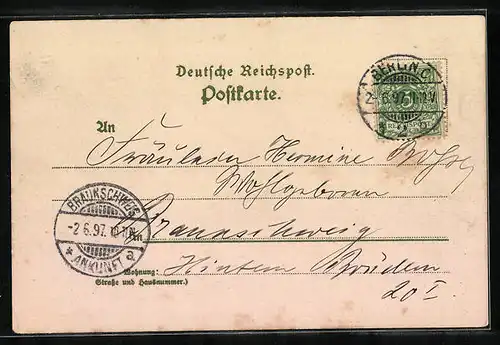 Deutsche Reichspost.
Postkarte.
BERLIN C.
2.6.97.
An
Fräulein Hermine
Wohlgeboren
BRAUNSCHWEIG
-2.6.97.
ANKUNFT
a
in
Braunschweig
Wohnung:
Straße und Hausnummer.)
Hintern Brüdern
20 I.